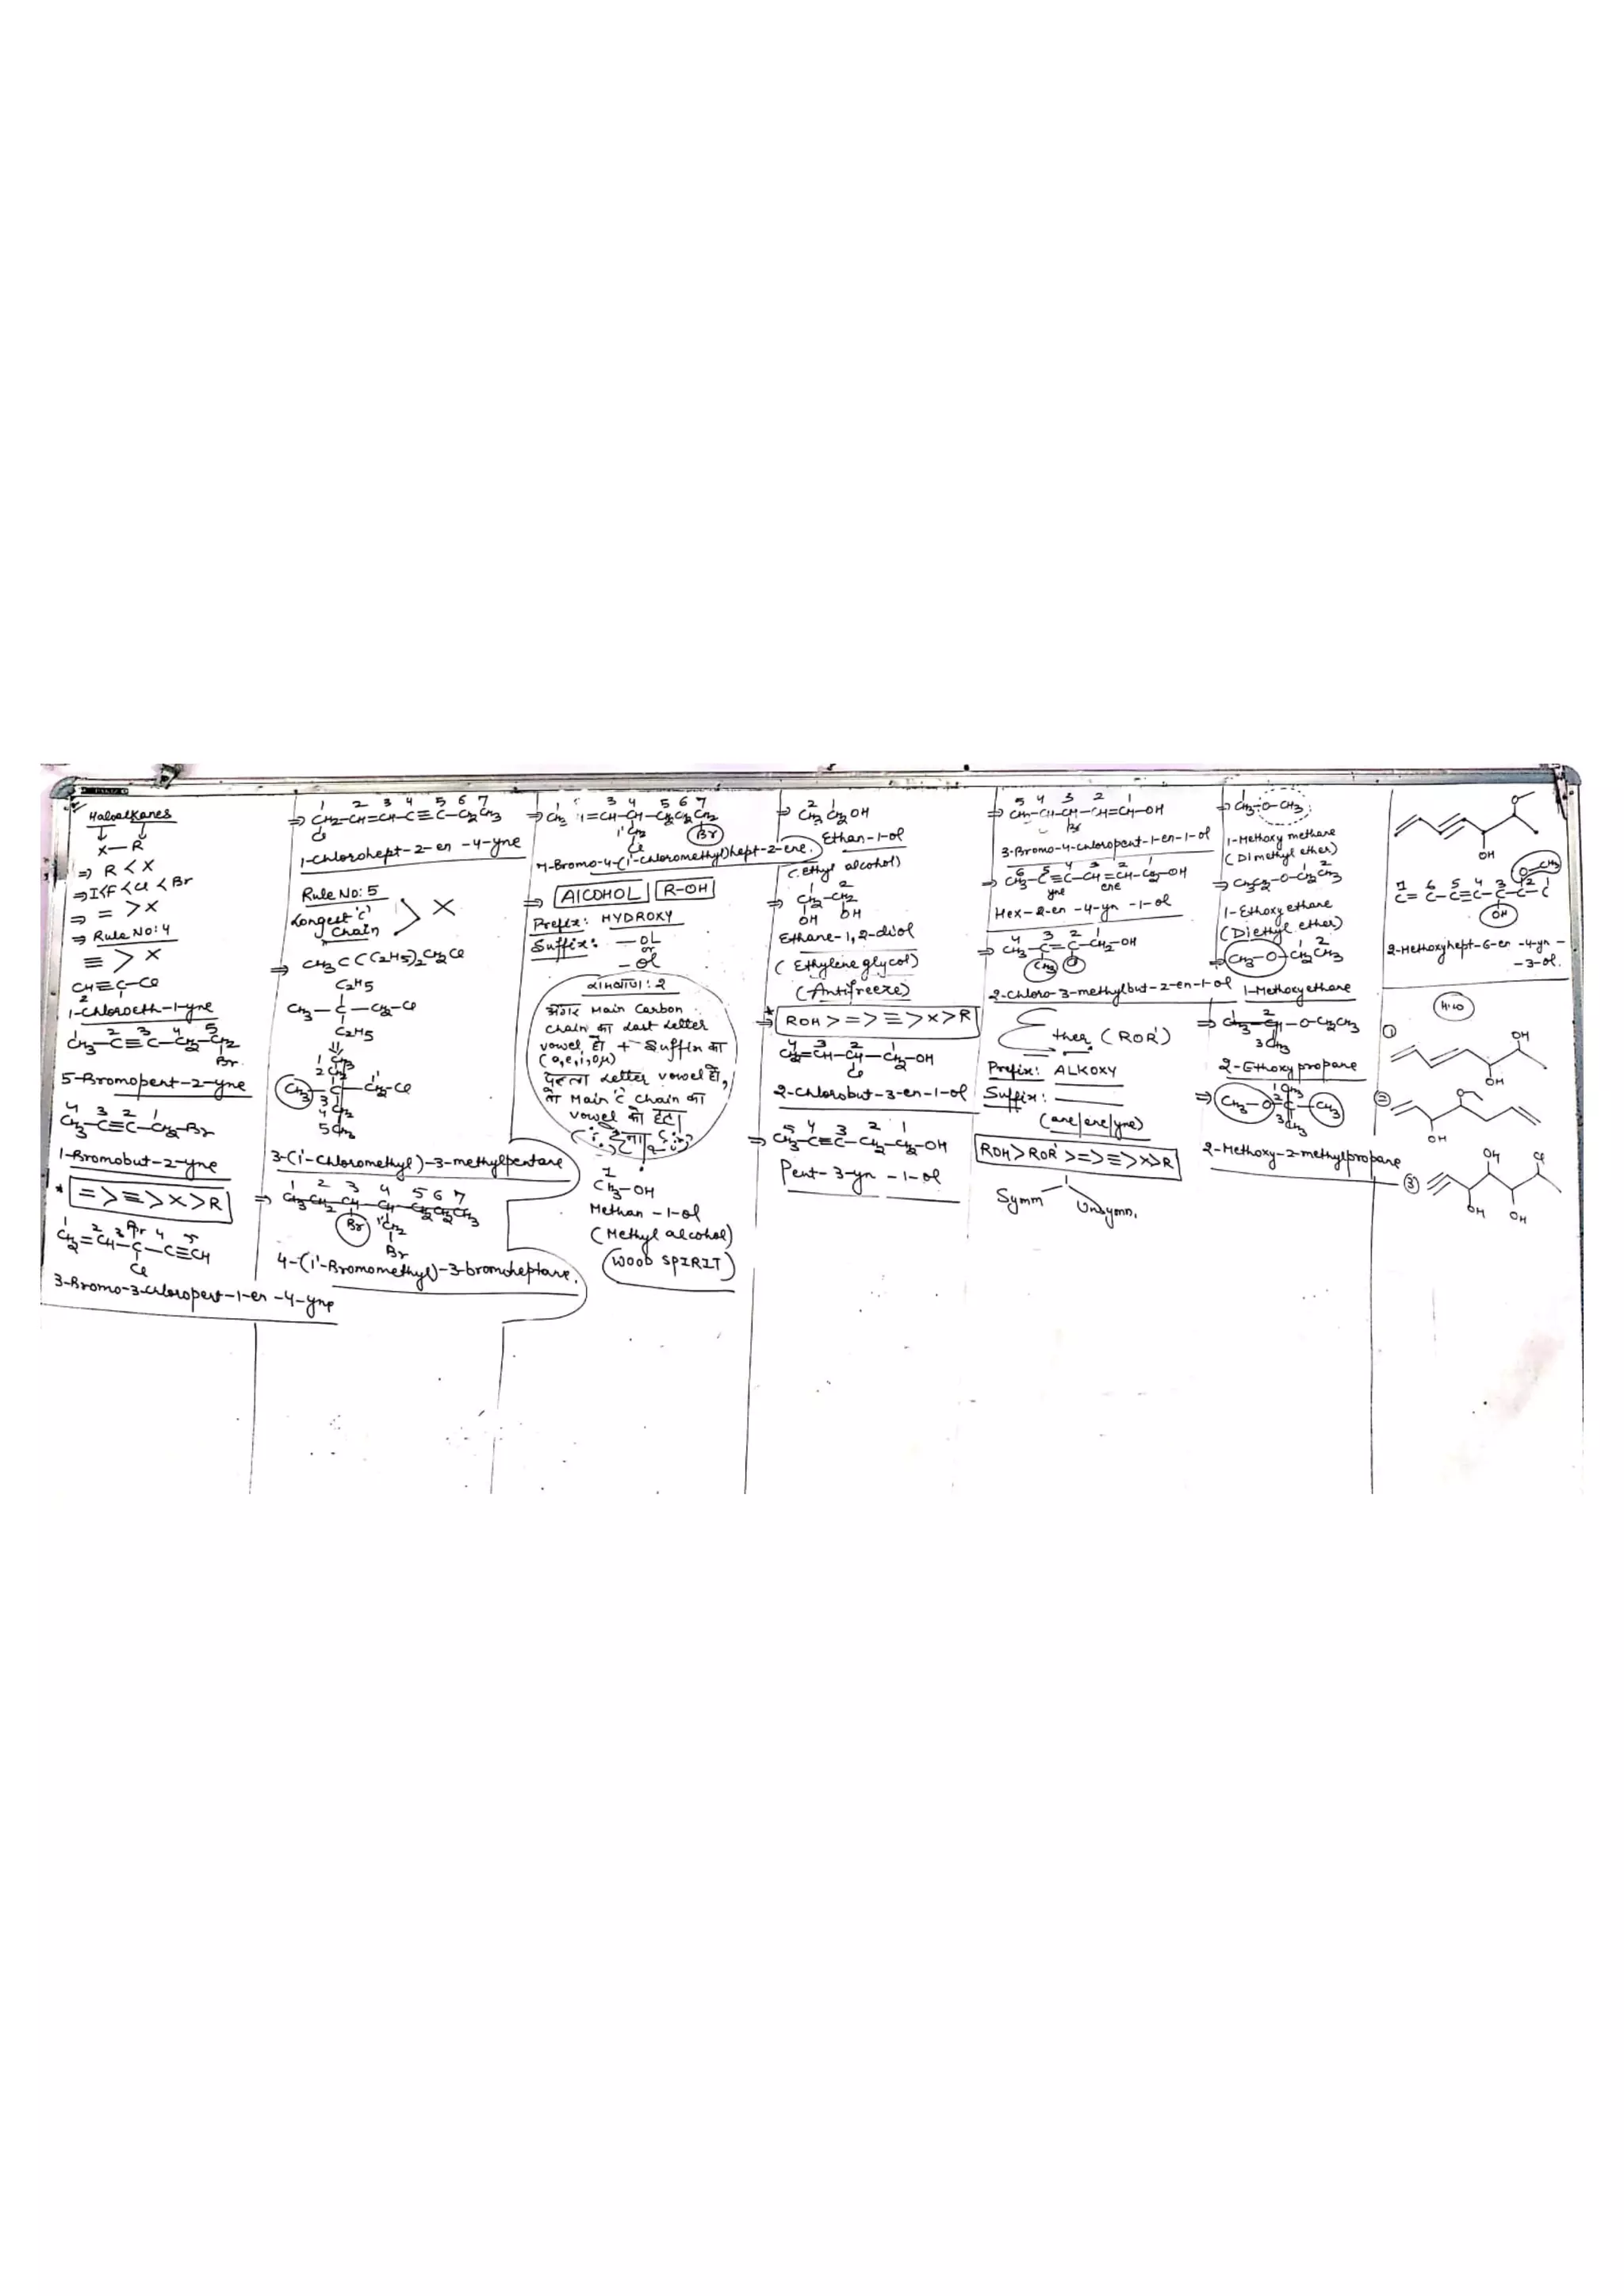 Haloalkanes
X—R
⇒ R < X
⇒ I<F<Cl<Br
⇒ = > X
⇒ Rule No: 4
≡ > X
CH≡C—Cl
2 1
1-Chloroeth-1-yne
1 2 3 4 5
CH3—C≡C—CH2—CH2
Br
5-Bromopent-2-yne
4 3 2 1
CH3—C≡C—CH2—Br
1-Bromobut-2-yne
* = > ≡ > X > R
1 2 3 Br 4 5
CH2=CH—C—C≡CH
Cl
3-Bromo-3-chloropent-1-en-4-yne
1 2 3 4 5 6 7
⇒ CH2—CH=CH—C≡C—CH2CH3
Cl
1-Chlorohept-2-en-4-yne
Rule No: 5
Longest 'C' Chain > X
⇒ CH3C(C2H5)2CH2Cl
C2H5
CH3—C—CH2—Cl
C2H5
⇓
1 CH3
2 CH2
CH3—C—CH2—Cl
3 1'
4 CH2
5 CH3
3-(1'-Chloromethyl)-3-methylpentane
1 2 3 4 5 6 7
⇒ CH3CH2—CH—CH—CH2CH2CH3
Br 1'CH2
Br
4-(1'-Bromomethyl)-3-bromoheptane.
1 3 4 5 6 7
⇒ CH3 =CH—CH—CH2CH2CH2
1'CH2 Br
Cl
7-Bromo-4-(1'-chloromethyl)hept-2-ene.
⇒ AlCOHOL R-OH
Prefix: HYDROXY
Suffix: —OL
or
—ol
सावधानी: 2
अगर Main Carbon
chain का Last Letter
vowel हो + Suffix का
(a,e,i,o,u)
पहला Letter vowel हो,
तो Main 'C' Chain का
vowel को हटा
देना
1
CH3—OH
Methan-1-ol
(Methyl alcohol)
(WOOD SPIRIT)
2 1
⇒ CH3CH2OH
Ethan-1-ol
(ethyl alcohol)
1 2
⇒ CH2—CH2
OH OH
Ethane-1,2-diol
(Ethylene glycol)
(Antifreeze)
* ⇒ ROH > = > ≡ > X > R
4 3 2 1
CH2=CH—CH—CH2—OH
Cl
2-Chlorobut-3-en-1-ol
5 4 3 2 1
⇒ CH3—C≡C—CH2—CH2—OH
Pent-3-yn-1-ol
5 4 3 2 1
⇒ CH3—CH—CH—CH=CH—OH
Br
3-Bromo-4-chloropent-1-en-1-ol
6 5 4 3 2 1
⇒ CH3—C≡C—CH=CH—CH2—OH
yne ene
Hex-2-en-4-yn-1-ol
4 3 2 1
⇒ CH3—C=C—CH2—OH
CH3 Cl
2-Chloro-3-methylbut-2-en-1-ol
Ether (ROR')
Prefix: ALKOXY
Suffix:
(ane/ene/yne)
ROH>ROR'>=>≡>X>R
Symm Unsymm.
1
⇒ CH3-O-CH3
1-Methoxy methane
(Dimethyl ether)
1 2
⇒ CH3CH2—O—CH2CH3
1-Ethoxy ethane
(Diethyl ether)
1 2
⇒ CH3—O—CH2CH3
1-Methoxyethane
1 2
⇒ CH3—CH—O—CH2CH3
3CH3
2-Ethoxypropane
1CH3
⇒ CH3—O—C—CH3
2
3CH3
2-Methoxy-2-methylpropane
O
OH
O—CH3
7 6 5 4 3 2 1
C=C—C≡C—C—C—C
OH
2-Methoxyhept-6-en-4-yn-
-3-ol.
H.W
① OH
OH
② O
OH
③ OH Cl
OH OH